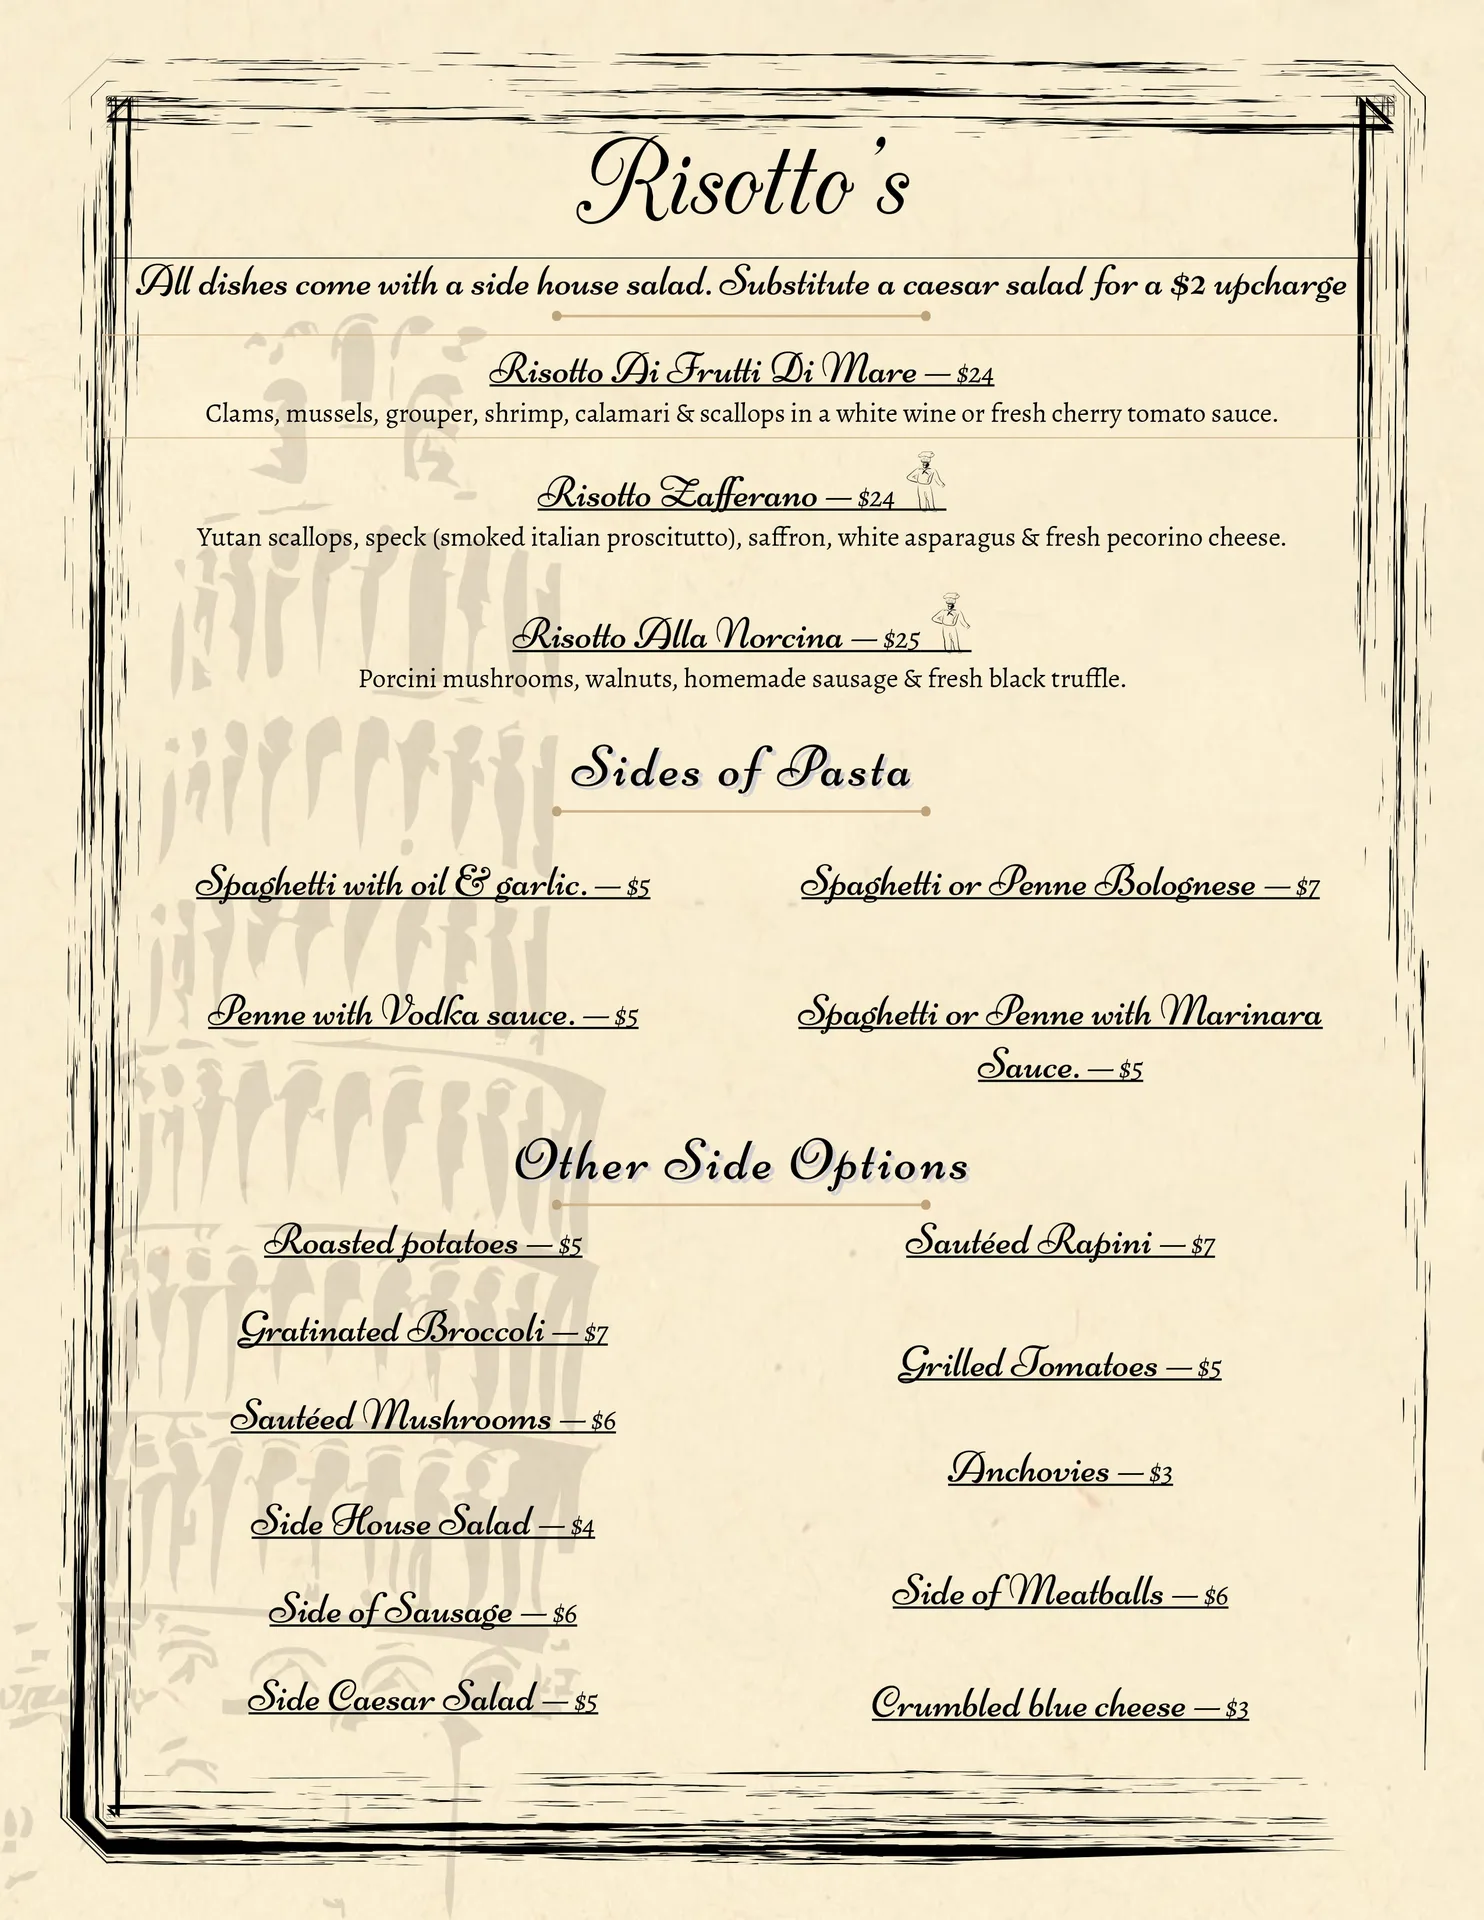 Risotto's
All dishes come with a side house salad. Substitute a caesar salad for a $2 upcharge
Risotto Ai Frutti Di Mare — $24
Clams, mussels, grouper, shrimp, calamari & scallops in a white wine or fresh cherry tomato sauce.
Risotto Zafferano — $24
Yutan scallops, speck (smoked italian proscitutto), saffron, white asparagus & fresh pecorino cheese.
Risotto Alla Norcina — $25
Porcini mushrooms, walnuts, homemade sausage & fresh black truffle.
Sides of Pasta
Spaghetti with oil & garlic. — $5
Spaghetti or Penne Bolognese — $7
Penne with Vodka sauce. — $5
Spaghetti or Penne with Marinara
Sauce. — $5
Other Side Options
Roasted potatoes — $5
Gratinated Broccoli — $7
Sautéed Mushrooms — $6
Side House Salad — $4
Side of Sausage — $6
Side Caesar Salad — $5
Sautéed Rapini — $7
Grilled Tomatoes — $5
Anchovies — $3
Side of Meatballs — $6
Crumbled blue cheese — $3